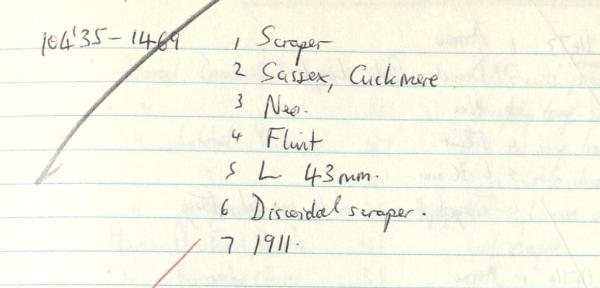 104'35-1469 1 Scraper
2 Sussex, Cuckmere
3 Neo.
4 Flint
5 L 43mm.
6 Discoidal scraper.
7 1911.